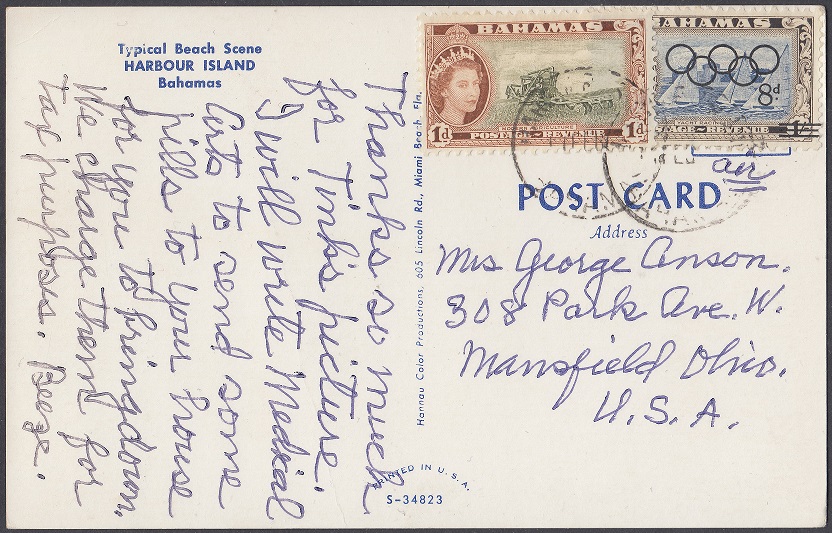 Typical Beach Scene
HARBOUR ISLAND
Bahamas
BAHAMAS
MODERN AGRICULTURE
1d POSTAGE-REVENUE 1d
BAHAMAS
8d
AGE-REVENUE
air
POST CARD
Address
Mrs George Anson.
308 Park Ave. W.
Mansfield Ohio.
U.S.A.
Thanks so much
for Tink's picture.
I will write Medical
Arts to send some
pills to your house
for you to bring down.
We charge them for
tax purposes. Beeze.
Hannau Color Productions, 605 Lincoln Rd., Miami Beach, Fla.
PRINTED IN U.S.A.
S-34823